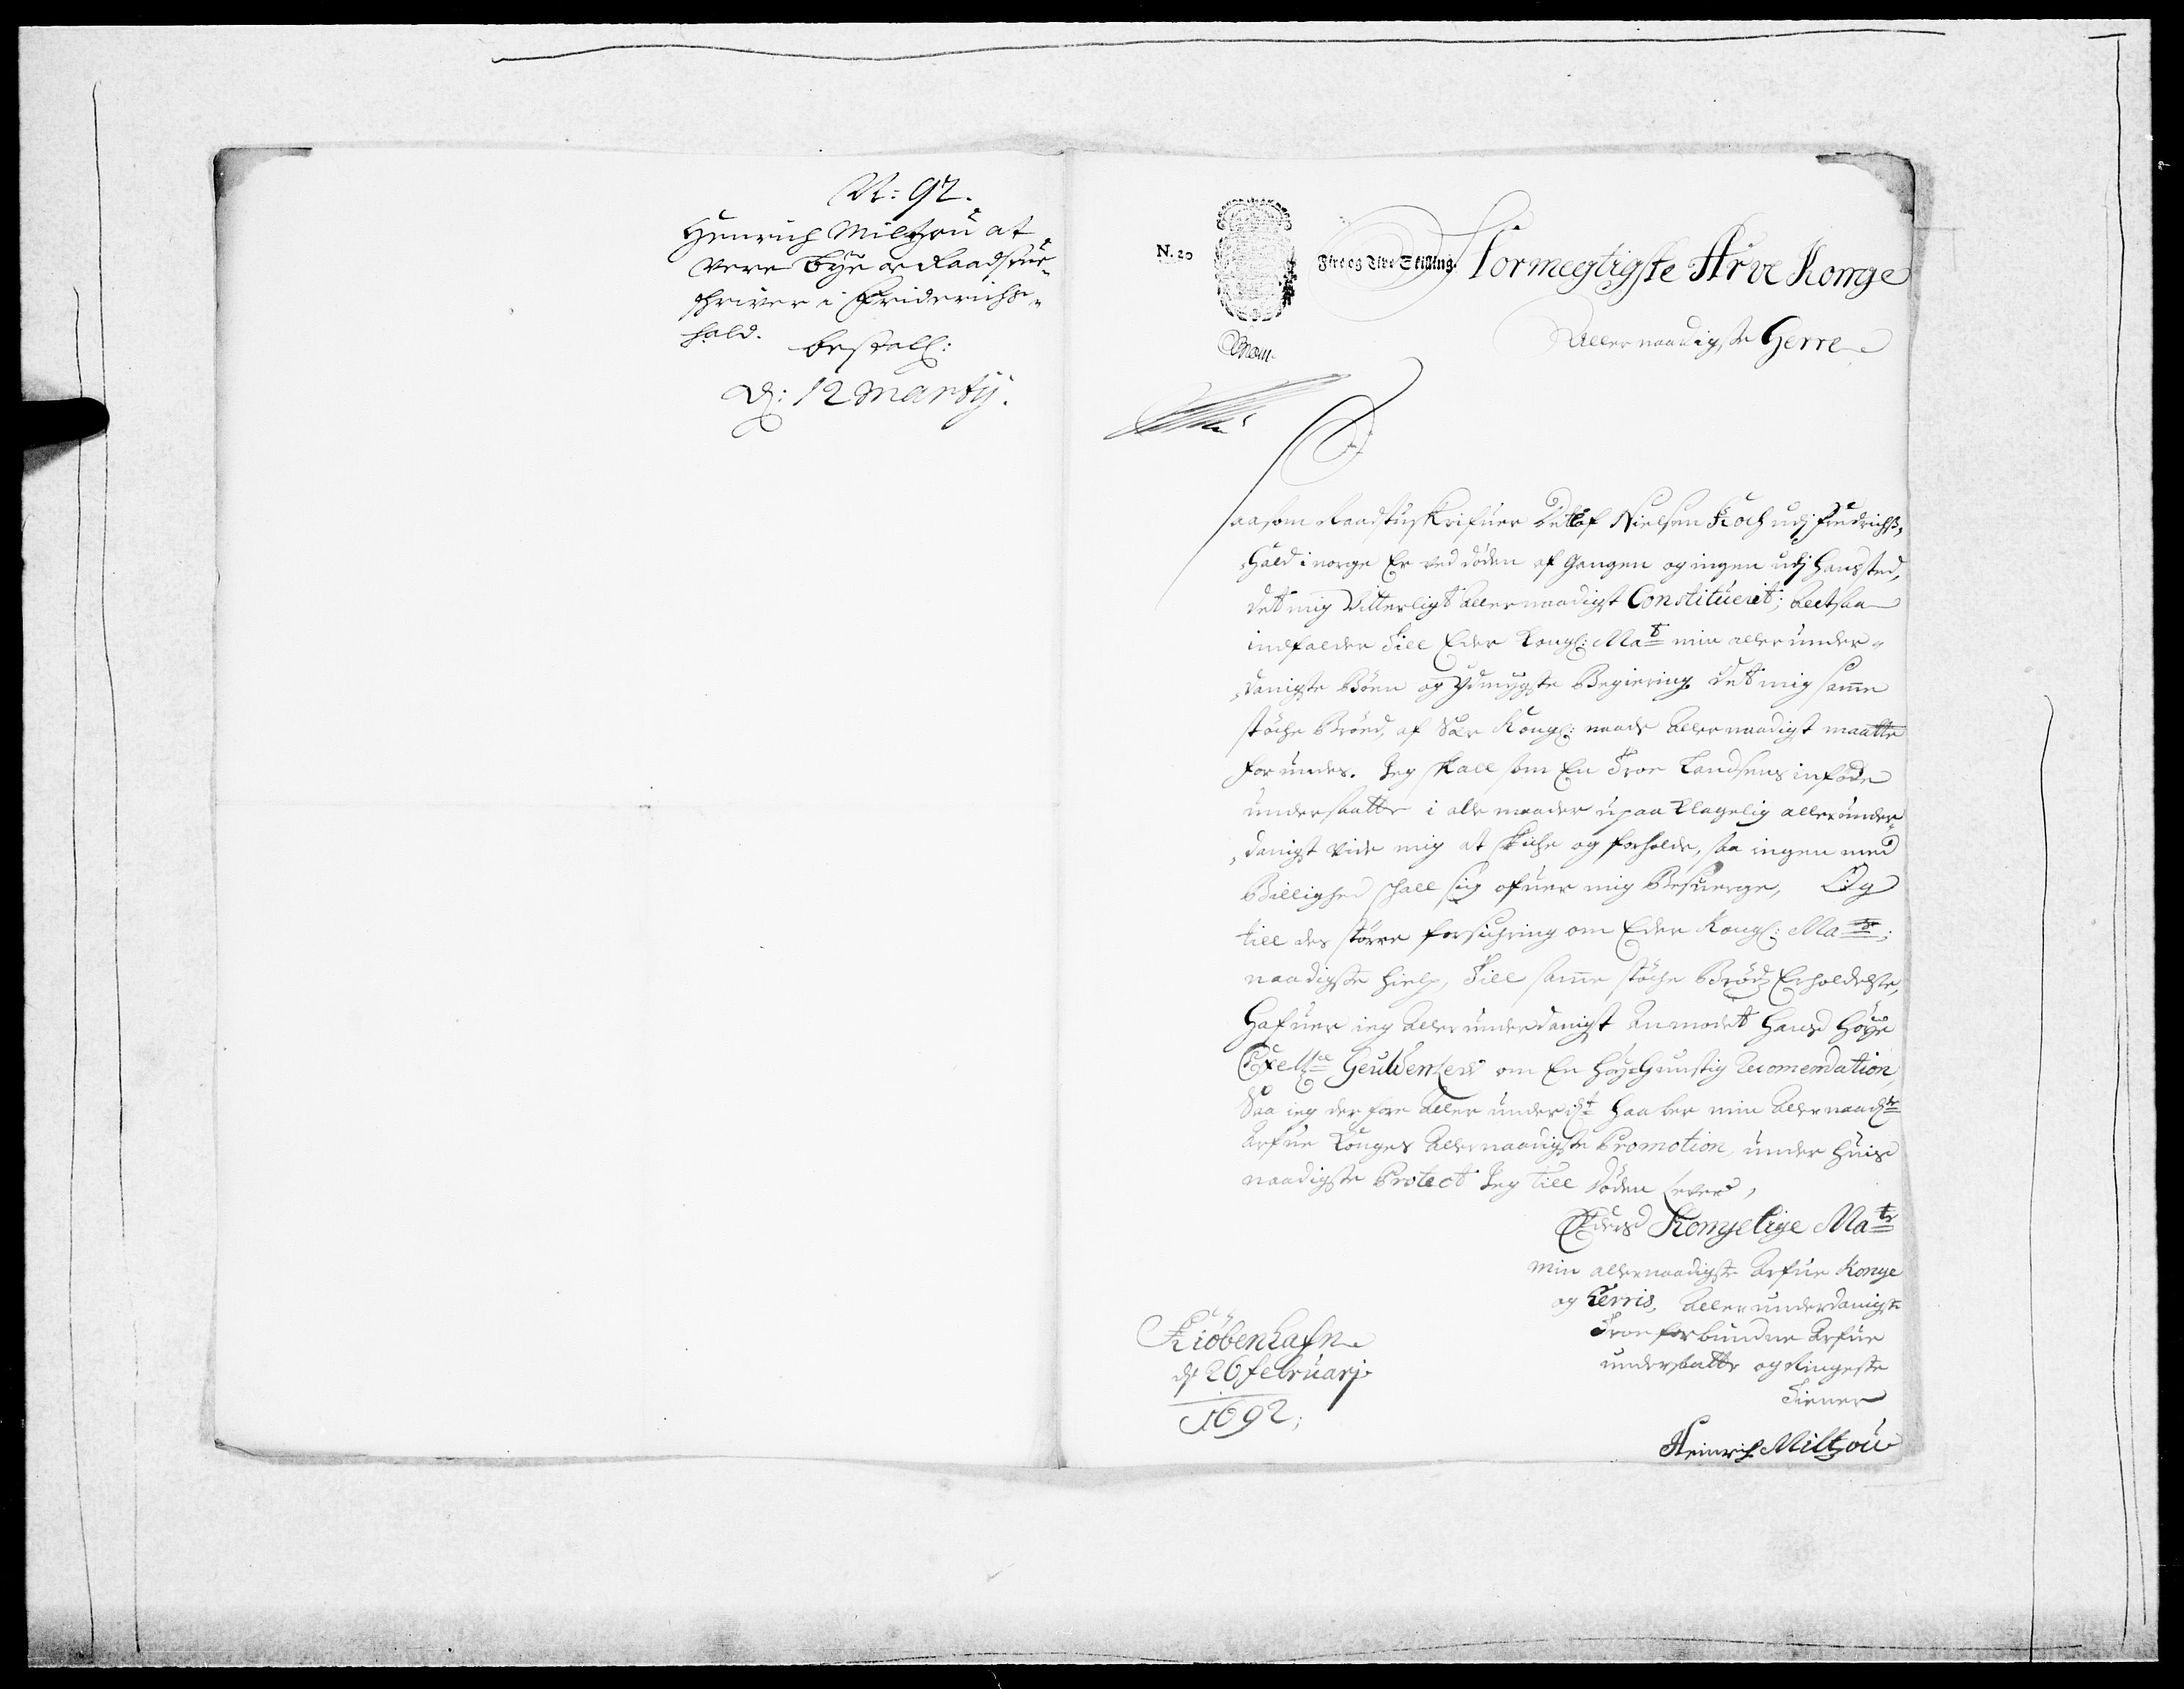 N: 92.
Henrich Miltzou at
være bye og Raadstue-
schriver i Friderichs-
hald.
bestall:
D: 12 Marty.
N. 20
Fire og Tive Skilling.
Stormegtigste Arve Konge
Allernaadigste Herre
Saasom Raadstuskrifuer Detlof Nielsen Koch udj Fredrichs-
hald i norge Er ved döden af gangen og ingen udj hans sted,
det mig Vitterligt allernaadigst Constituerit; altsaa
indfalder Till Eder Kongl: Matt min aller under-
danigste Bön og Ydmygste Begiering det mig samme
støche Brød, af Sær Kongl: naade Allernaadigst maatte
forundes. Jeg skall som En Troe Landsens inføde
undersaatte i alle maader upaaklagelig allerunder-
danigst vide mig at skiche og forholde, saa ingen med
Billighed schall sig ofuer mig Besuerge, Og
till des större forsichring om Eder Kongl: Matts:
naadigste hielp, Till samme støche Brøds Erholdelse,
Hafuer ieg Allerunderdanigst Anmodet hans Høye
Exellce Geuldenleu om En høygunstig Recomendation,
Saa ieg der fore Aller underdt haaber min Allernaadste
Arfue Konges Allernaadigste Promotion, under huis
naadigste Protect Jeg till Döden Lever,
Eders Kongelige Matts
min allernaadigste Arfue Konge
og Herris, Allerunderdanigste
Troe forbundne Arfue
undersaatte og Ringeste
Tiener
Heinrich Miltzou
Kiöbenhafn
d. 26 februarj
1692;